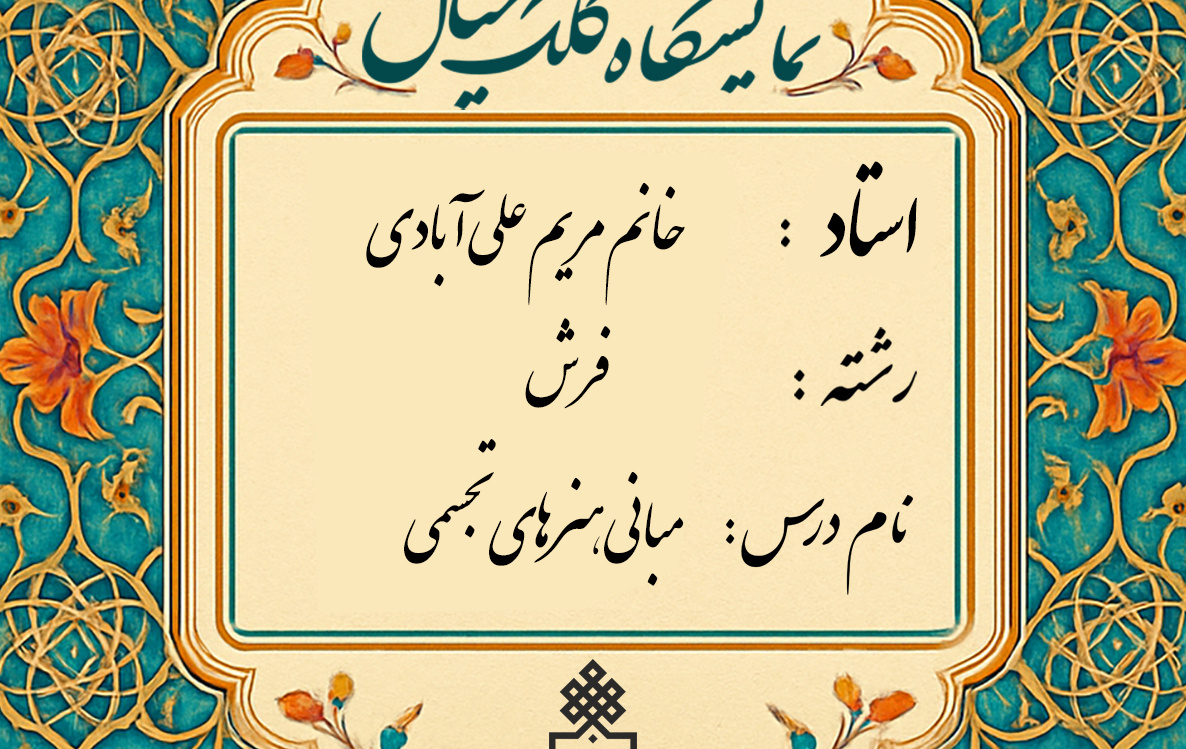 نمایشگاه کلک خیال
استاد : خانم مریم علی‌آبادی
رشته : فرش
نام درس: مبانی هنرهای تجسمی